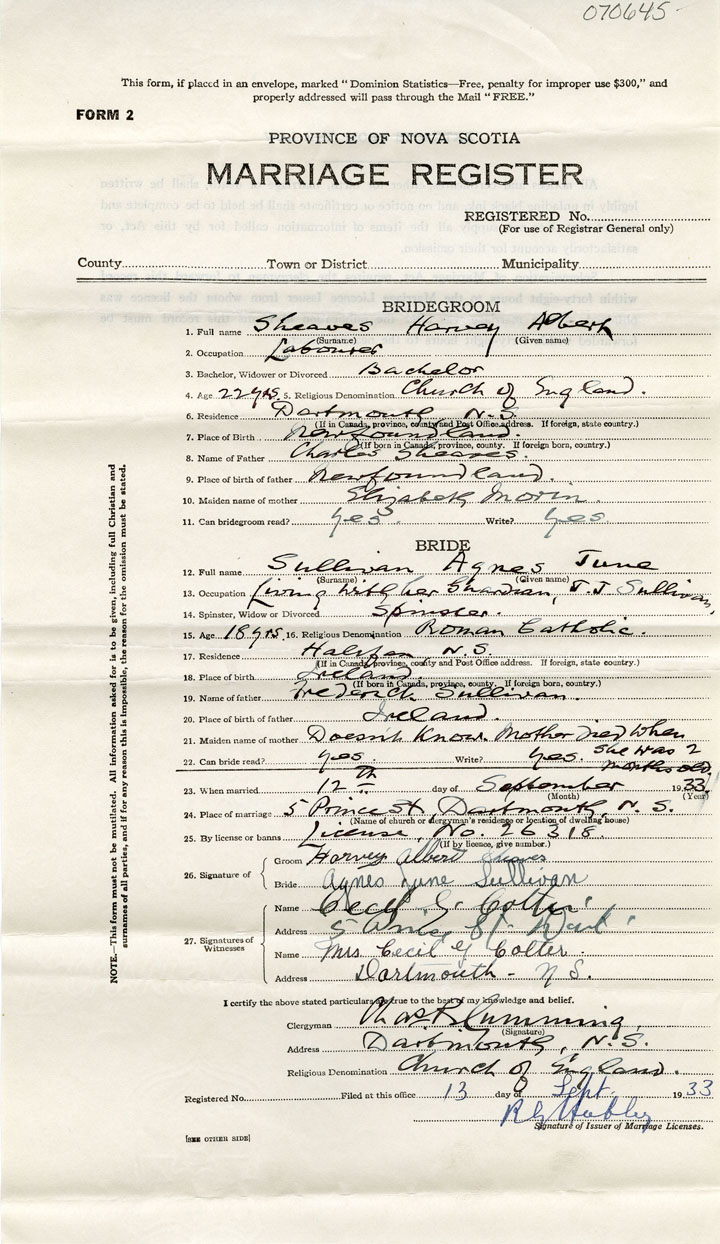 070645
This form, if placed in an envelope, marked "Dominion Statistics—Free, penalty for improper use $300," and
properly addressed will pass through the Mail "FREE."
FORM 2
PROVINCE OF NOVA SCOTIA
MARRIAGE REGISTER
REGISTERED No.
(For use of Registrar General only)
County Town or District Municipality
BRIDEGROOM
1. Full name Sheaves Harvey Albert
(Surname) (Given name)
2. Occupation Labourer
3. Bachelor, Widower or Divorced Bachelor
4. Age 22 yrs. 5. Religious Denomination Church of England.
6. Residence Dartmouth N.S.
(If in Canada, province, county and Post Office address. If foreign, state country.)
7. Place of Birth Newfoundland
(If born in Canada, province, county. If foreign born, country.)
8. Name of Father Charles Sheaves.
9. Place of birth of father Newfoundland.
10. Maiden name of mother Elizabeth Morin
11. Can bridegroom read? yes Write? yes
BRIDE
12. Full name Sullivan Agnes June
(Surname) (Given name)
13. Occupation Living with her Guardian, T.J Sullivan,
14. Spinster, Widow or Divorced Spinster.
15. Age 18 yrs. 16. Religious Denomination Roman Catholic.
17. Residence Halifax N.S.
(If in Canada, province, county and Post Office address. If foreign, state country.)
18. Place of birth Ireland
(If born in Canada, province, county. If foreign born, country.)
19. Name of father Frederick Sullivan.
20. Place of birth of father Ireland.
21. Maiden name of mother Doesn't Know. Mother died when
22. Can bride read? yes Write? yes. she was 2
months old.
23. When married 12th day of September 1933
(Month) (Year)
24. Place of marriage 5 Prince St, Dartmouth, N.S.
(Name of church or clergyman's residence or location of dwelling house)
25. By license or banns License, No. 26318
(If by licence, give number.)
26. Signature of Groom Harvey Albert Sheaves
Bride Agnes June Sullivan
27. Signatures of Witnesses
Name Cecil G. Colter
Address 5 Prince St. Dart
Name Mrs Cecil G Colter
Address Dartmouth - N S.
I certify the above stated particulars are true to the best of my knowledge and belief.
Clergyman Chas R Cumming
(Signature)
Address Dartmouth, N.S.
Religious Denomination Church of England.
Registered No. Filed at this office 13 day of Sept 1933
Signature of Issuer of Marriage Licenses.
[SEE OTHER SIDE]
NOTE.—This form must not be mutilated. All information asked for is to be given, including full Christian and
surnames of all parties, and if for any reason this is impossible, the reason for the omission must be stated.